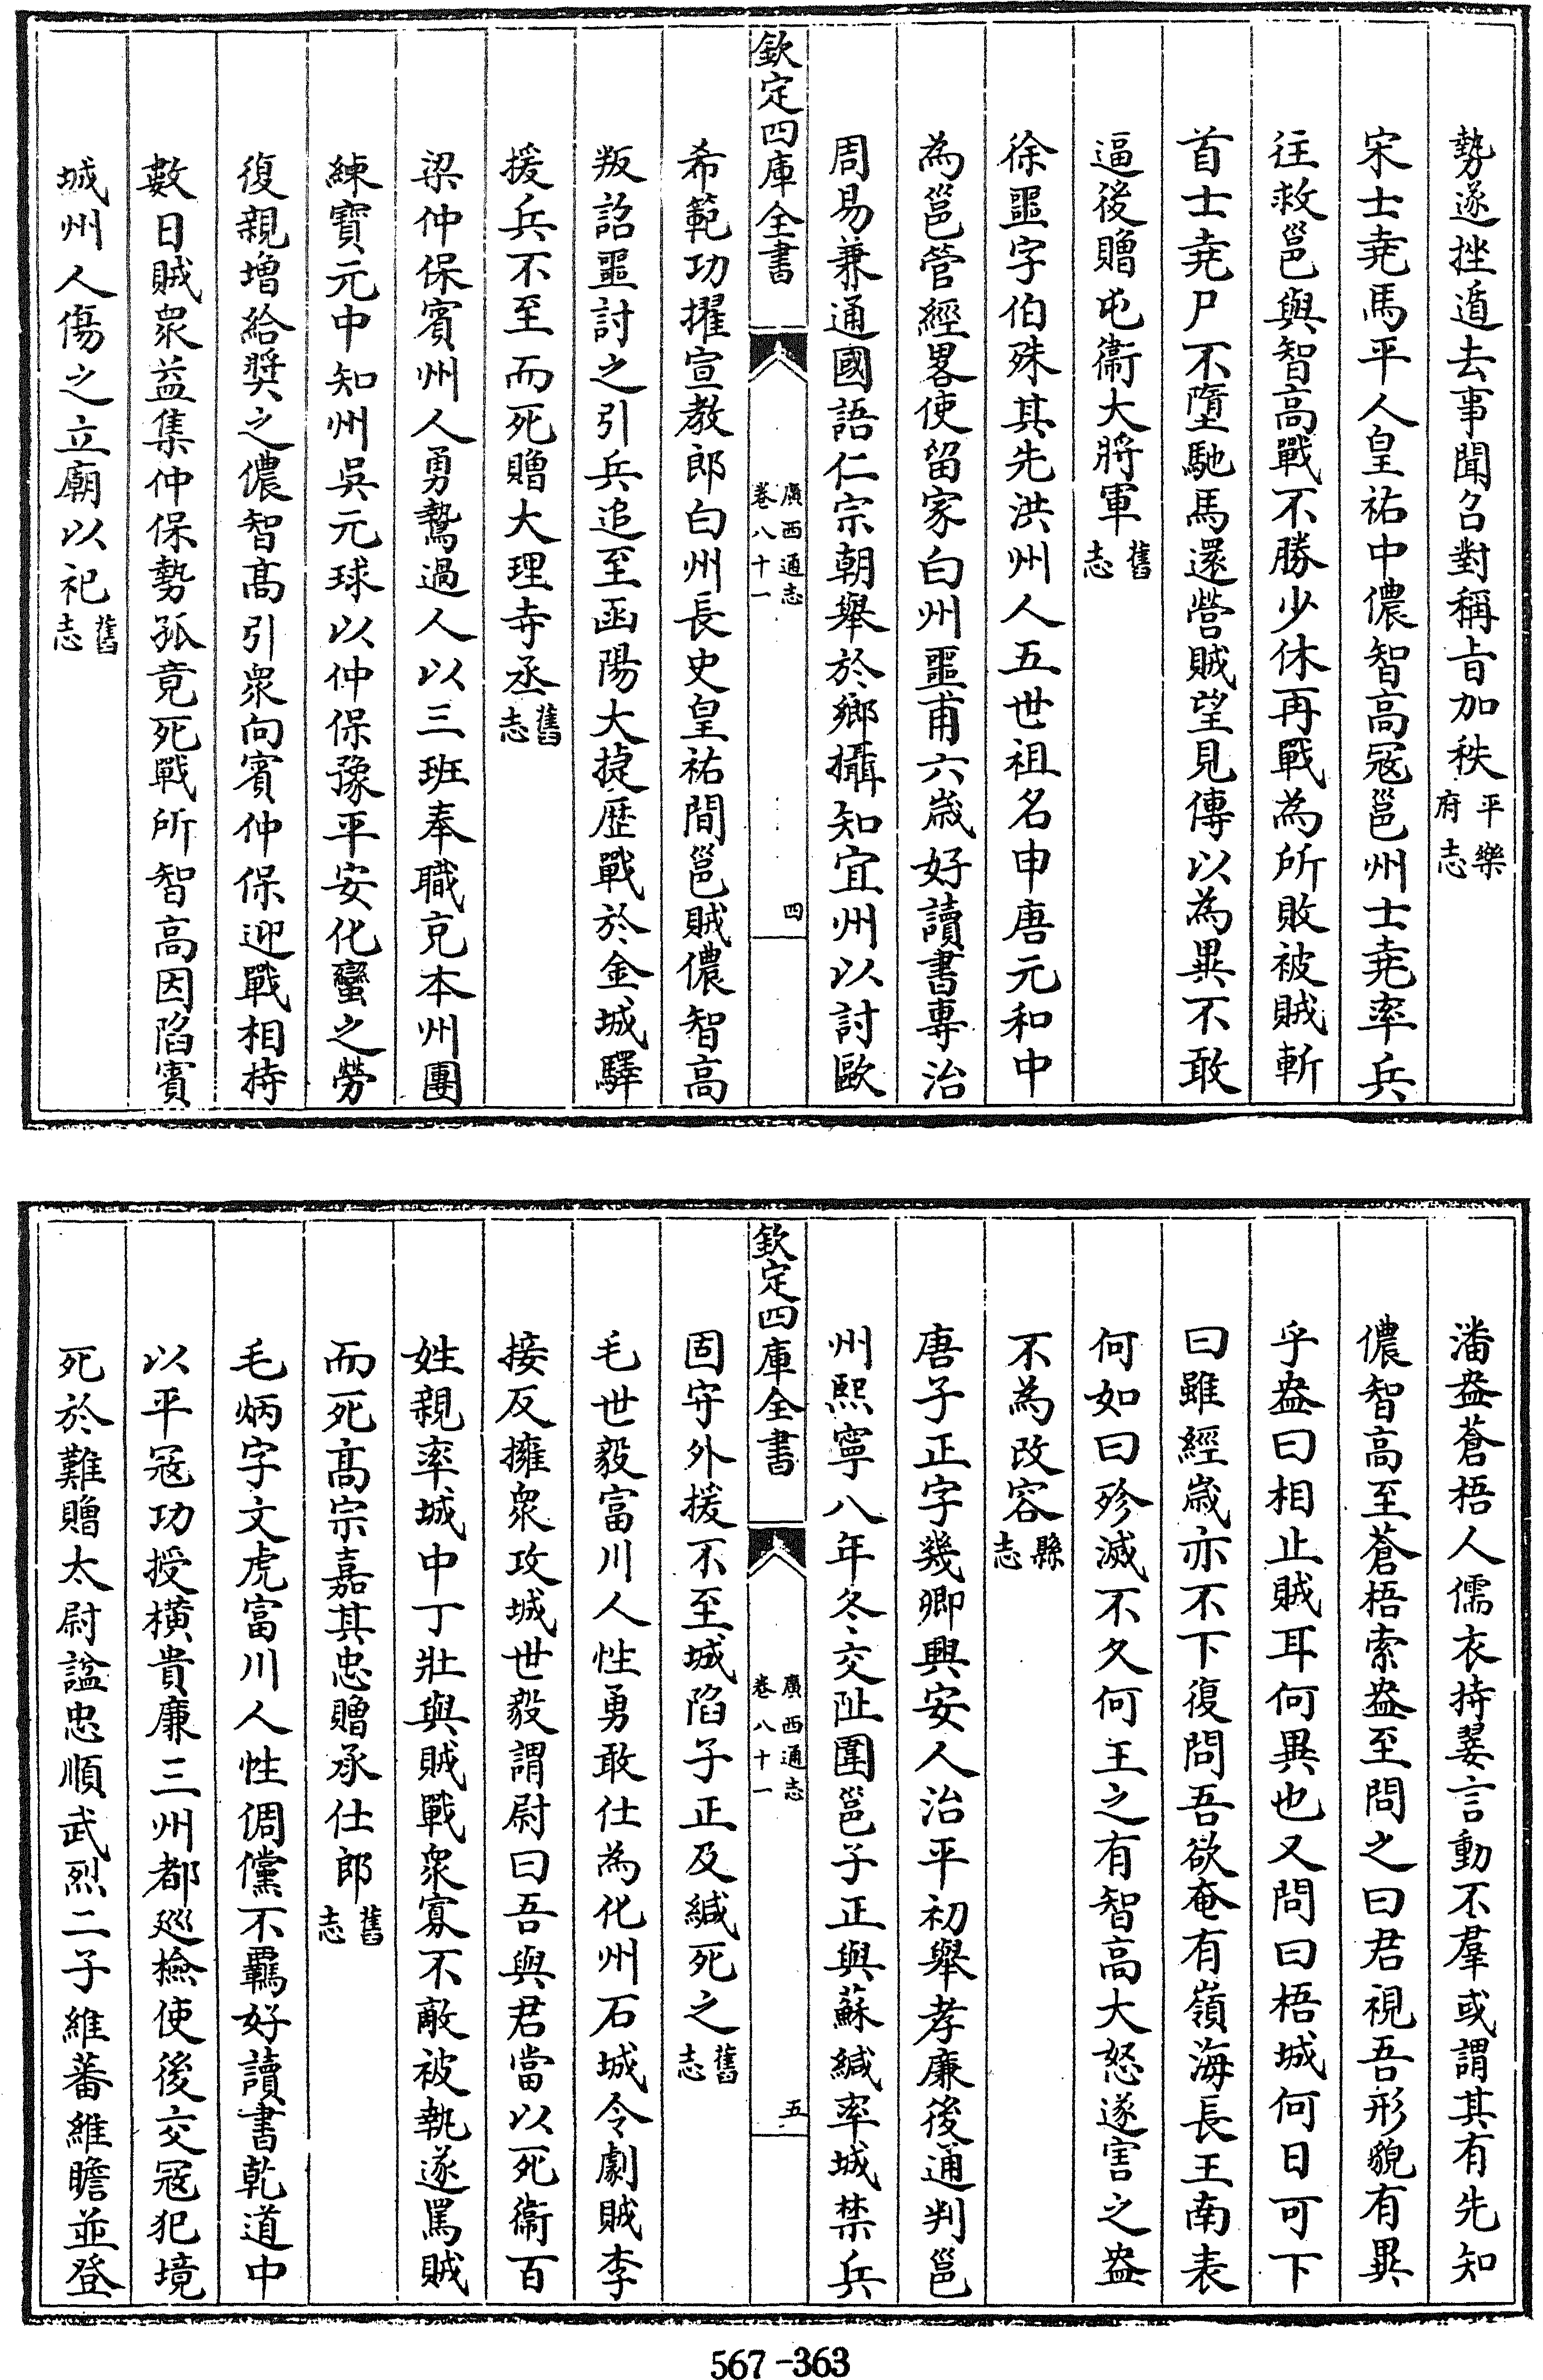 勢遂挫遁去事聞召對稱旨加秩平樂府志
宋士堯馬平人皇祐中儂智高冦邕州士堯率兵
往救邕與智高戰不勝少休再戰為所敗被賊斬
首士堯尸不墮馳馬還營賊望見傳以為異不敢
逼後贈屯衞大將軍舊志
徐噩字伯殊其先洪州人五世祖名申唐元和中
為邕管經畧使留家白州噩甫六歲好讀書專治
周易兼通國語仁宗朝舉於鄉攝知宜州以討歐
欽定四庫全書
廣西通志
卷八十一
四
希範功擢宣教郎白州長史皇祐間邕賊儂智高
叛詔噩討之引兵追至函陽大捷歴戰於金城驛
援兵不至而死贈大理寺丞舊志
梁仲保賓州人勇鷙過人以三班奉職充本州團
練寶元中知州吳元球以仲保豫平安化蠻之勞
復親增給奬之儂智高引衆向賓仲保迎戰相持
數日賊衆益集仲保勢孤竟死戰所智高因陷賓
城州人傷之立廟以祀舊志
潘盎蒼梧人儒衣持翣言動不羣或謂其有先知
儂智高至蒼梧索盎至問之曰君視吾形貌有異
乎盎曰相止賊耳何異也又問曰梧城何日可下
曰雖經歲亦不下復問吾欲奄有嶺海長王南表
何如曰殄滅不久何王之有智高大怒遂害之盎
不為改容縣志
唐子正字幾卿興安人治平初舉孝廉後通判邕
州熙寧八年冬交阯圍邕子正與蘇緘率城禁兵
欽定四庫全書
廣西通志
卷八十一
五
固守外援不至城陷子正及緘死之舊志
毛世毅富川人性勇敢仕為化州石城令劇賊李
接反擁衆攻城世毅謂尉曰吾與君當以死衞百
姓親率城中丁壯與賊戰衆寡不敵被執遂罵賊
而死高宗嘉其忠贈承仕郎舊志
毛炳字文虎富川人性倜儻不羈好讀書乾道中
以平冦功授横貴廉三州都巡檢使後交冦犯境
死於難贈太尉諡忠順武烈二子維蕃維瞻並登
567-363